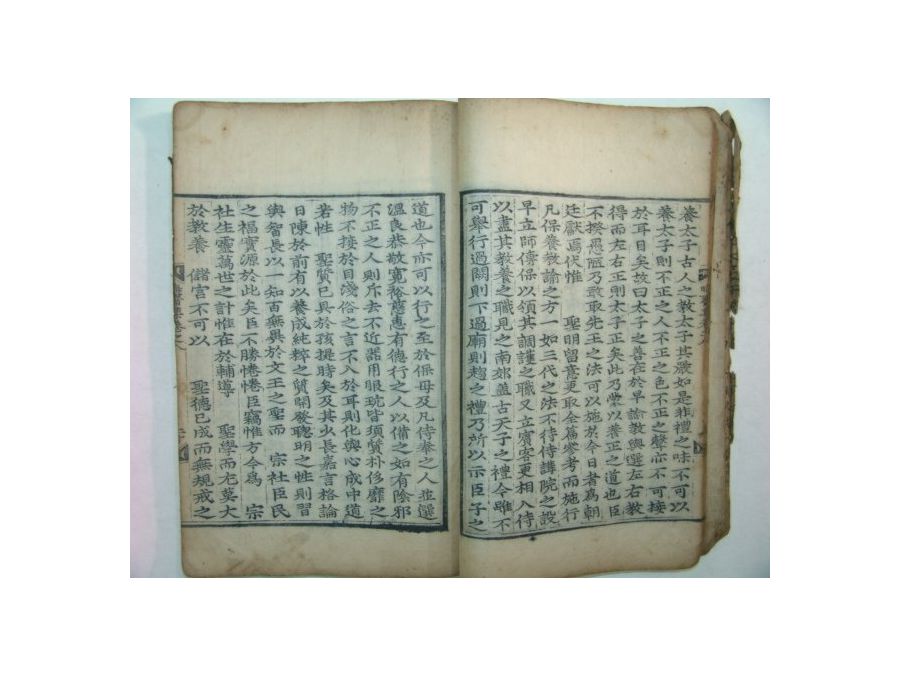 養太子古人之教太子其嚴如是非禮之味不可以
養太子則不正之人不正之色不正之聲亦不可接
於耳目矣故曰太子之善在於早諭教與選左右教
得而左右正則太子正矣此乃蒙以養正之道也臣
不揆愚陋乃敢取先王之法可以施於今日者為朝
廷獻焉伏惟 聖明留意更取全篇參考而施行
凡保養教諭之方一如三代之法不待侍講院之設
早立師傅保以領其調護之職又立賓客更相入侍
以盡其教養之職見之南郊盖古天子之禮今雖不
可舉行過闕則下過廟則趨之禮乃所以示臣子之
道也今亦可以行之至於保母及凡侍奉之人並選
溫良恭敬寬裕慈惠有德行之人以備之如有陰邪
不正之人則斥去不近器用服玩皆須質朴侈靡之
物不接於目淺俗之言不入於耳則化與心成中道
若性 聖質已具於孩提時矣及其少長嘉言格論
日陳於前有以養成純粹之質開發聰明之性則習
與智長以一知百無異於文王之聖而 宗社臣民
之福實源於此矣臣不勝惓惓臣竊惟方今為 宗
社生靈萬世之計惟在於輔導 聖學而尤莫大
於教養 儲宮不可以 聖德已成而無規戒之